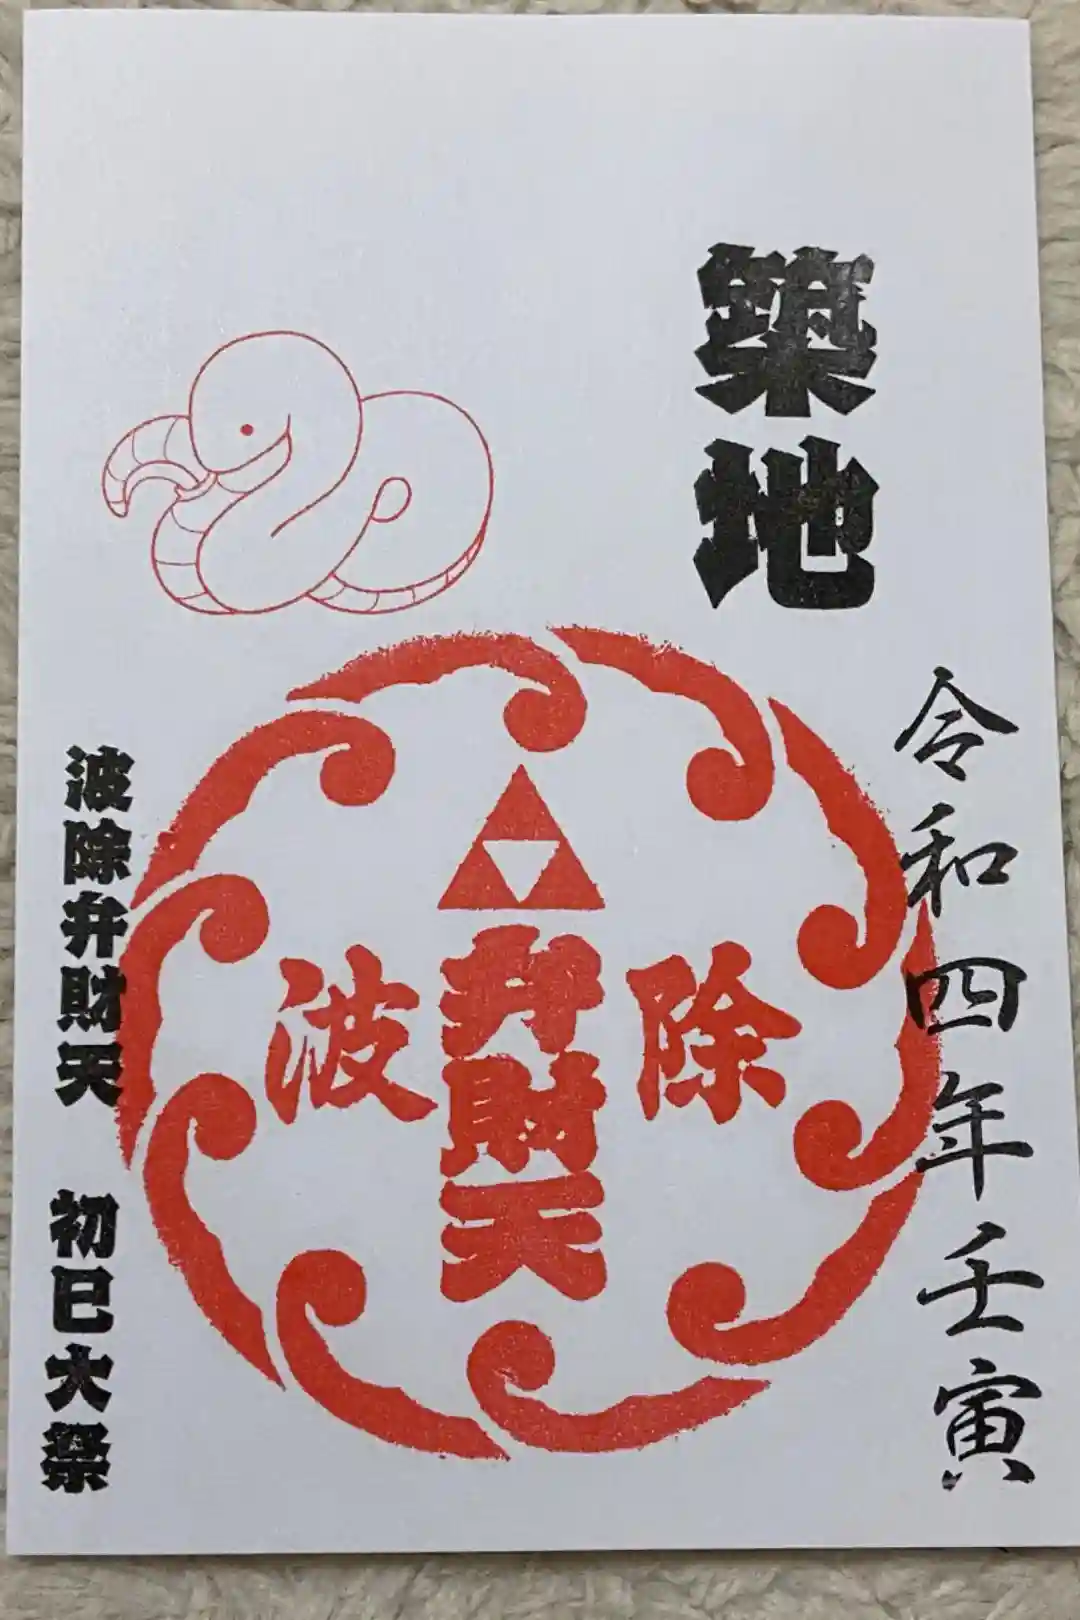 築地
令和四年壬寅
除
弁財天
波
波除弁財天 初巳大祭